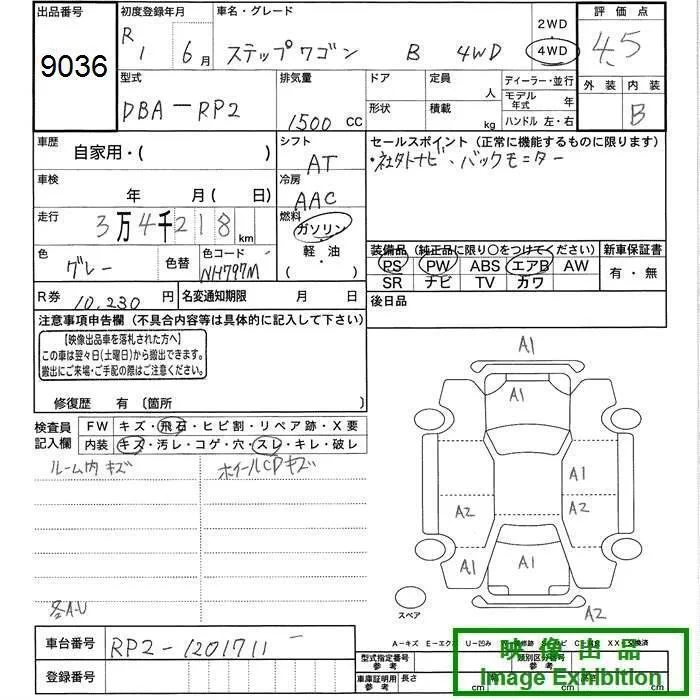 出品番号 初度登録年月 車名・グレード 2WD 評価点
9036 R 1 6月 ステップワゴン B 4WD 4WD 4.5
型式 排気量 ドア 定員 人 ディーラー・並行 外装 内装
DBA-RP2 1500cc 形状 積載 kg モデル年式 年 B
ハンドル 左・右
車歴 自家用・( ) シフト AT セールスポイント(正常に機能するものに限ります)
・社外ナビ、バックモニター
車検 年 月(日) 冷房 AAC
走行 3万4千218km 燃料 ガソリン
軽・油
( )
装備品(純正品に限り○をつけてください) 新車保証書
色 グレー 色替 色コード NH797M PS PW ABS エアB AW 有・無
SR ナビ TV カワ
R券 10,230円 名変通知期限 月 日 後日品
注意事項申告欄(不具合内容等は具体的に記入して下さい)
【映像出品車を落札された方へ】
この車は翌々日(土曜日)から搬出できます。
搬出にご来場・ご手配の際はご注意ください。
修復歴 有(箇所 )
検査員記入欄 FW キズ・飛石・ヒビ割・リペア跡・X要
内装 キズ・汚レ・コゲ・穴・スレ・キレ・破レ
ルーム内キズ ホイールCDキズ
各A-U
A1
A1
A1
A2 A2
A1 A1
A2
スペア
車台番号 RP2-1201711
登録番号
A-キズ E-エクボ U-凹み
型式指定番号 参考 類別区分番号 参考
車庫証明用 参考 長さ cm cm cm
映像出品
Image Exhibition